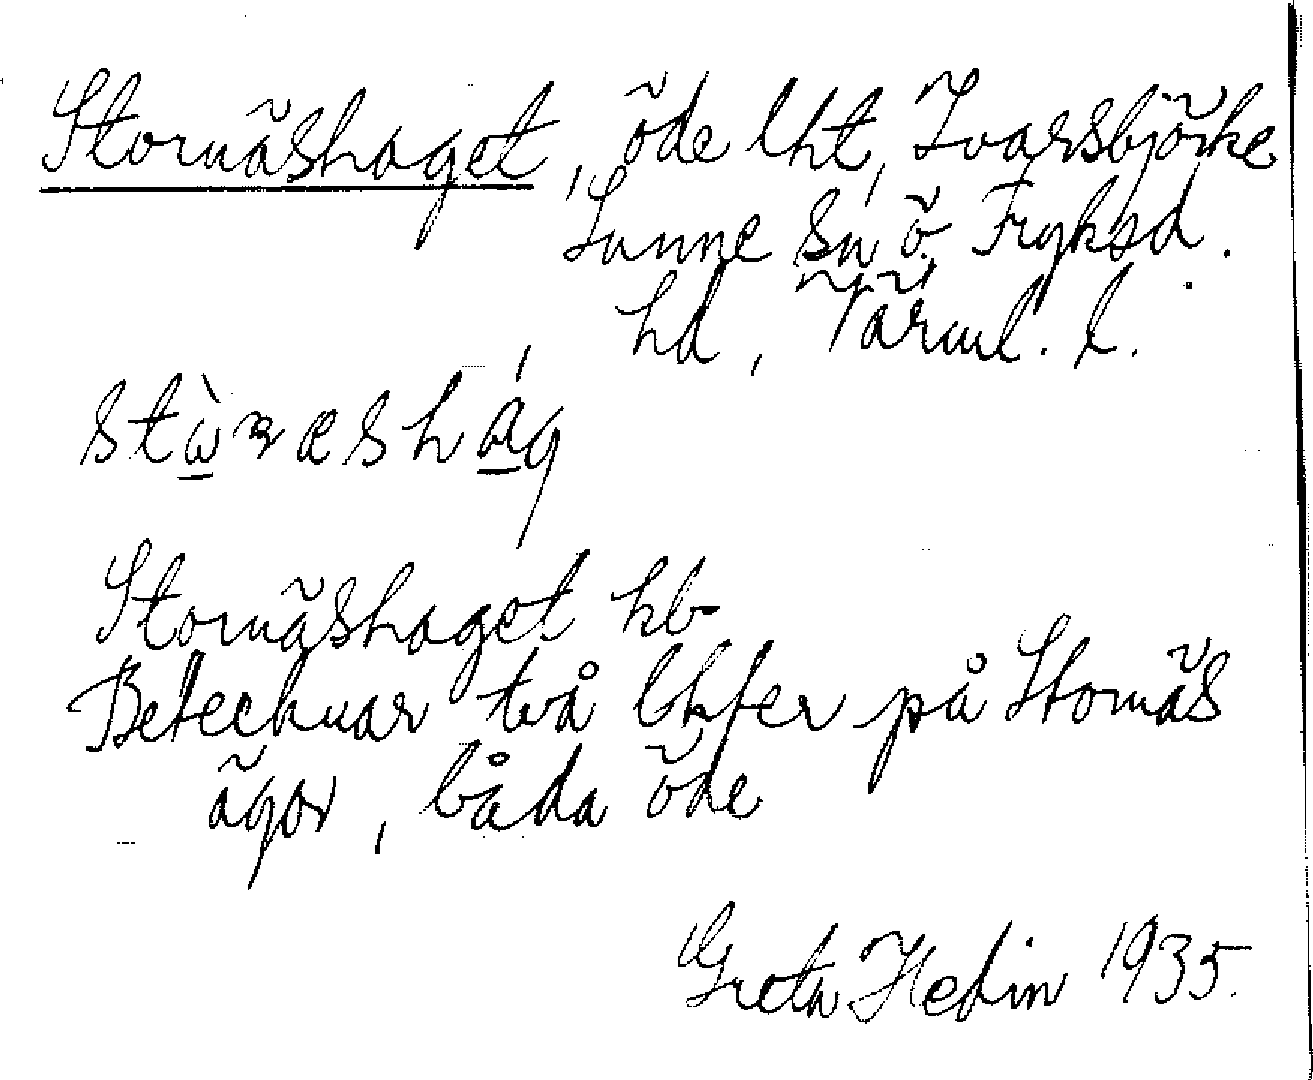 Stornäshaget, öde lht, Ivarsbjörke
Sunne sn Ö. Fryksd.
hd, Värml. l.
Stornäshaget kb
Betecknar två lhter på Stornäs
ägor, båda öde
Greta Hedin 1935.